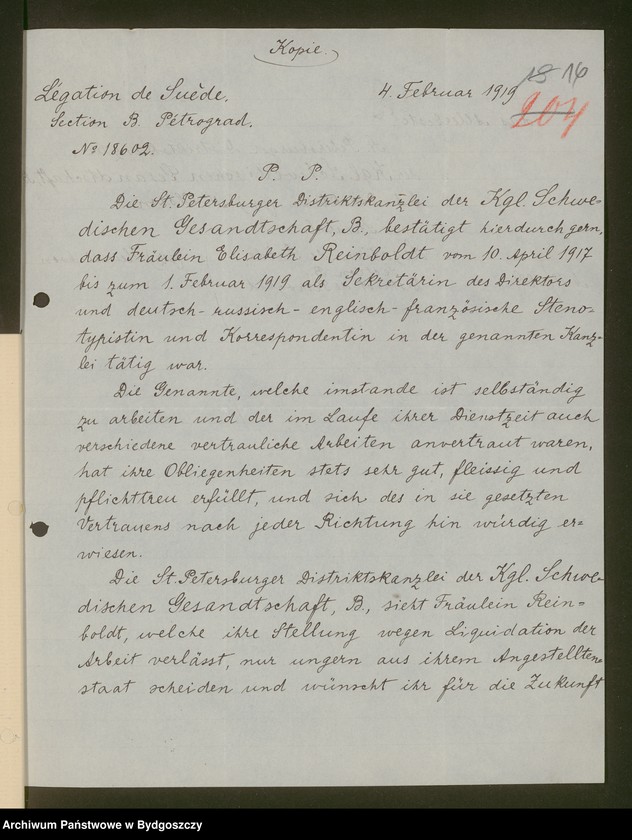 Kopie.
18 16
Légation de Suède.
4. Februar 1919
204
Section B. Pétrograd.
No 18602.
P. P.
Die St. Petersburger Distriktskanzlei der Kgl. Schwe-
dischen Gesandtschaft, B., bestätigt hierdurch gern,
dass Fräulein Elisabeth Reinboldt vom 10. April 1917
bis zum 1. Februar 1919 als Sekretärin des Direktors
und deutsch-russisch-englisch-französische Steno-
typistin und Korrespondentin in der genannten Kanz-
lei tätig war.
Die Genannte, welche imstande ist selbständig
zu arbeiten und der im Laufe ihrer Dienstzeit auch
verschiedene vertrauliche Arbeiten anvertraut waren,
hat ihre Obliegenheiten stets sehr gut, fleissig und
pflichttreu erfüllt, und sich des in sie gesetzten
Vertrauens nach jeder Richtung hin würdig er-
wiesen.
Die St. Petersburger Distriktskanzlei der Kgl. Schwe-
dischen Gesandtschaft, B., sieht Fräulein Rein-
boldt, welche ihre Stellung wegen Liquidation der
Arbeit verlässt, nur ungern aus ihrem Angestellten-
staat scheiden und wünscht ihr für die Zukunft
Archiwum Państwowe w Bydgoszczy